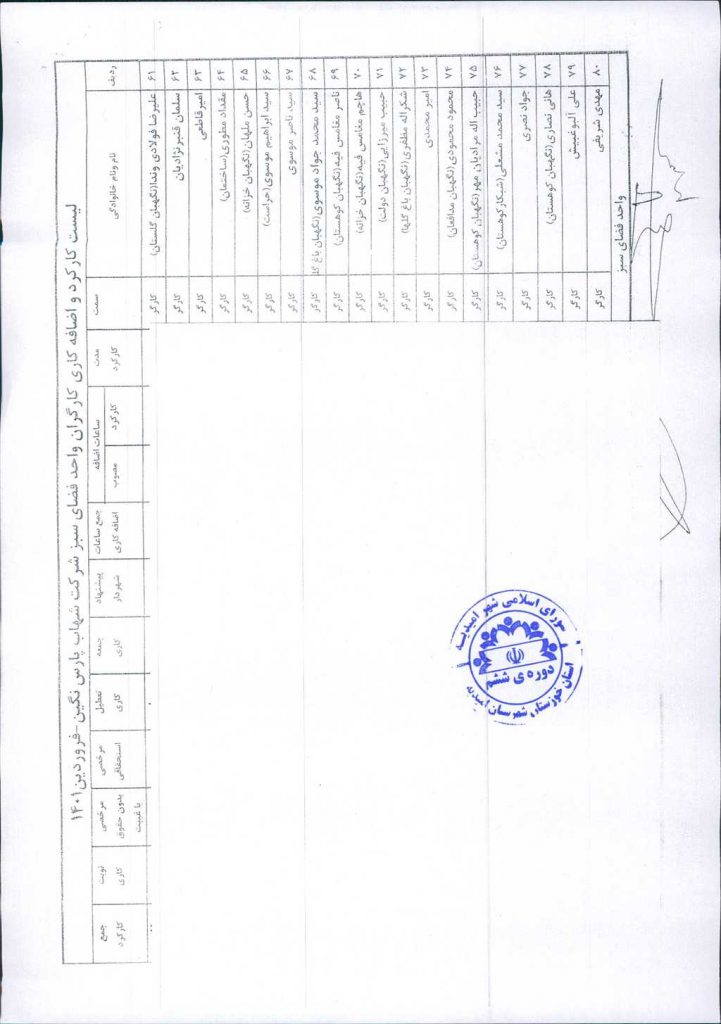 لیست کارکرد و اضافه کاری کارگران واحد فضای سبز شرکت شهاب پارس نگین -فروردین۱۴۰۱
ردیف نام ونام خانوادگی سمت مدت کارکرد ساعات اضافه کارکرد مصوب جمع ساعات اضافه کاری پیشنهاد شهردار جمعه کاری تعطیل کاری مرخصی استحقاقی مرخصی بدون حقوق یا غیبت نوبت کاری جمع کارکرد
۶۱ علیرضا فولادی وندا(نگهبان گلستان) کارگر
۶۲ سلمان قنبرنژادیان کارگر
۶۳ امیرقاطعی کارگر
۶۴ مقداد مطوری(ساختمان) کارگر
۶۵ حسن ملهان(نگهبان خزانه) کارگر
۶۶ سید ابراهیم موسوی(حراست) کارگر
۶۷ سید ناصر موسوی کارگر
۶۸ سید محمد جواد موسوی(نگهبان باغ گل کارگر
۶۹ ناصر مغامس فیه(نگهبان کوهستان) کارگر
۷۰ هاجم مغامس فیه(نگهبان خزانه) کارگر
۷۱ حبیب میرزایی(نگهبان دولت) کارگر
۷۲ شکراله مظفری(نگهبان باغ گلها) کارگر
۷۳ امیر محمدی کارگر
۷۴ محمود محمودی(نگهبان مدافعان) کارگر
۷۵ حبیب اله مرادیان مهر(نگهبان کوهستان) کارگر
۷۶ سید محمد مشعلی(شبکار کوهستان) کارگر
۷۷ جواد نصری کارگر
۷۸ هانی نصاری(نگهبان کوهستان) کارگر
۷۹ علی آلبوغبیش کارگر
۸۰ مهدی شریفی کارگر
واحد فضای سبز
شورای اسلامی شهر امیدیه
دوره ی ششم
استان خوزستان شهرستان امیدیه